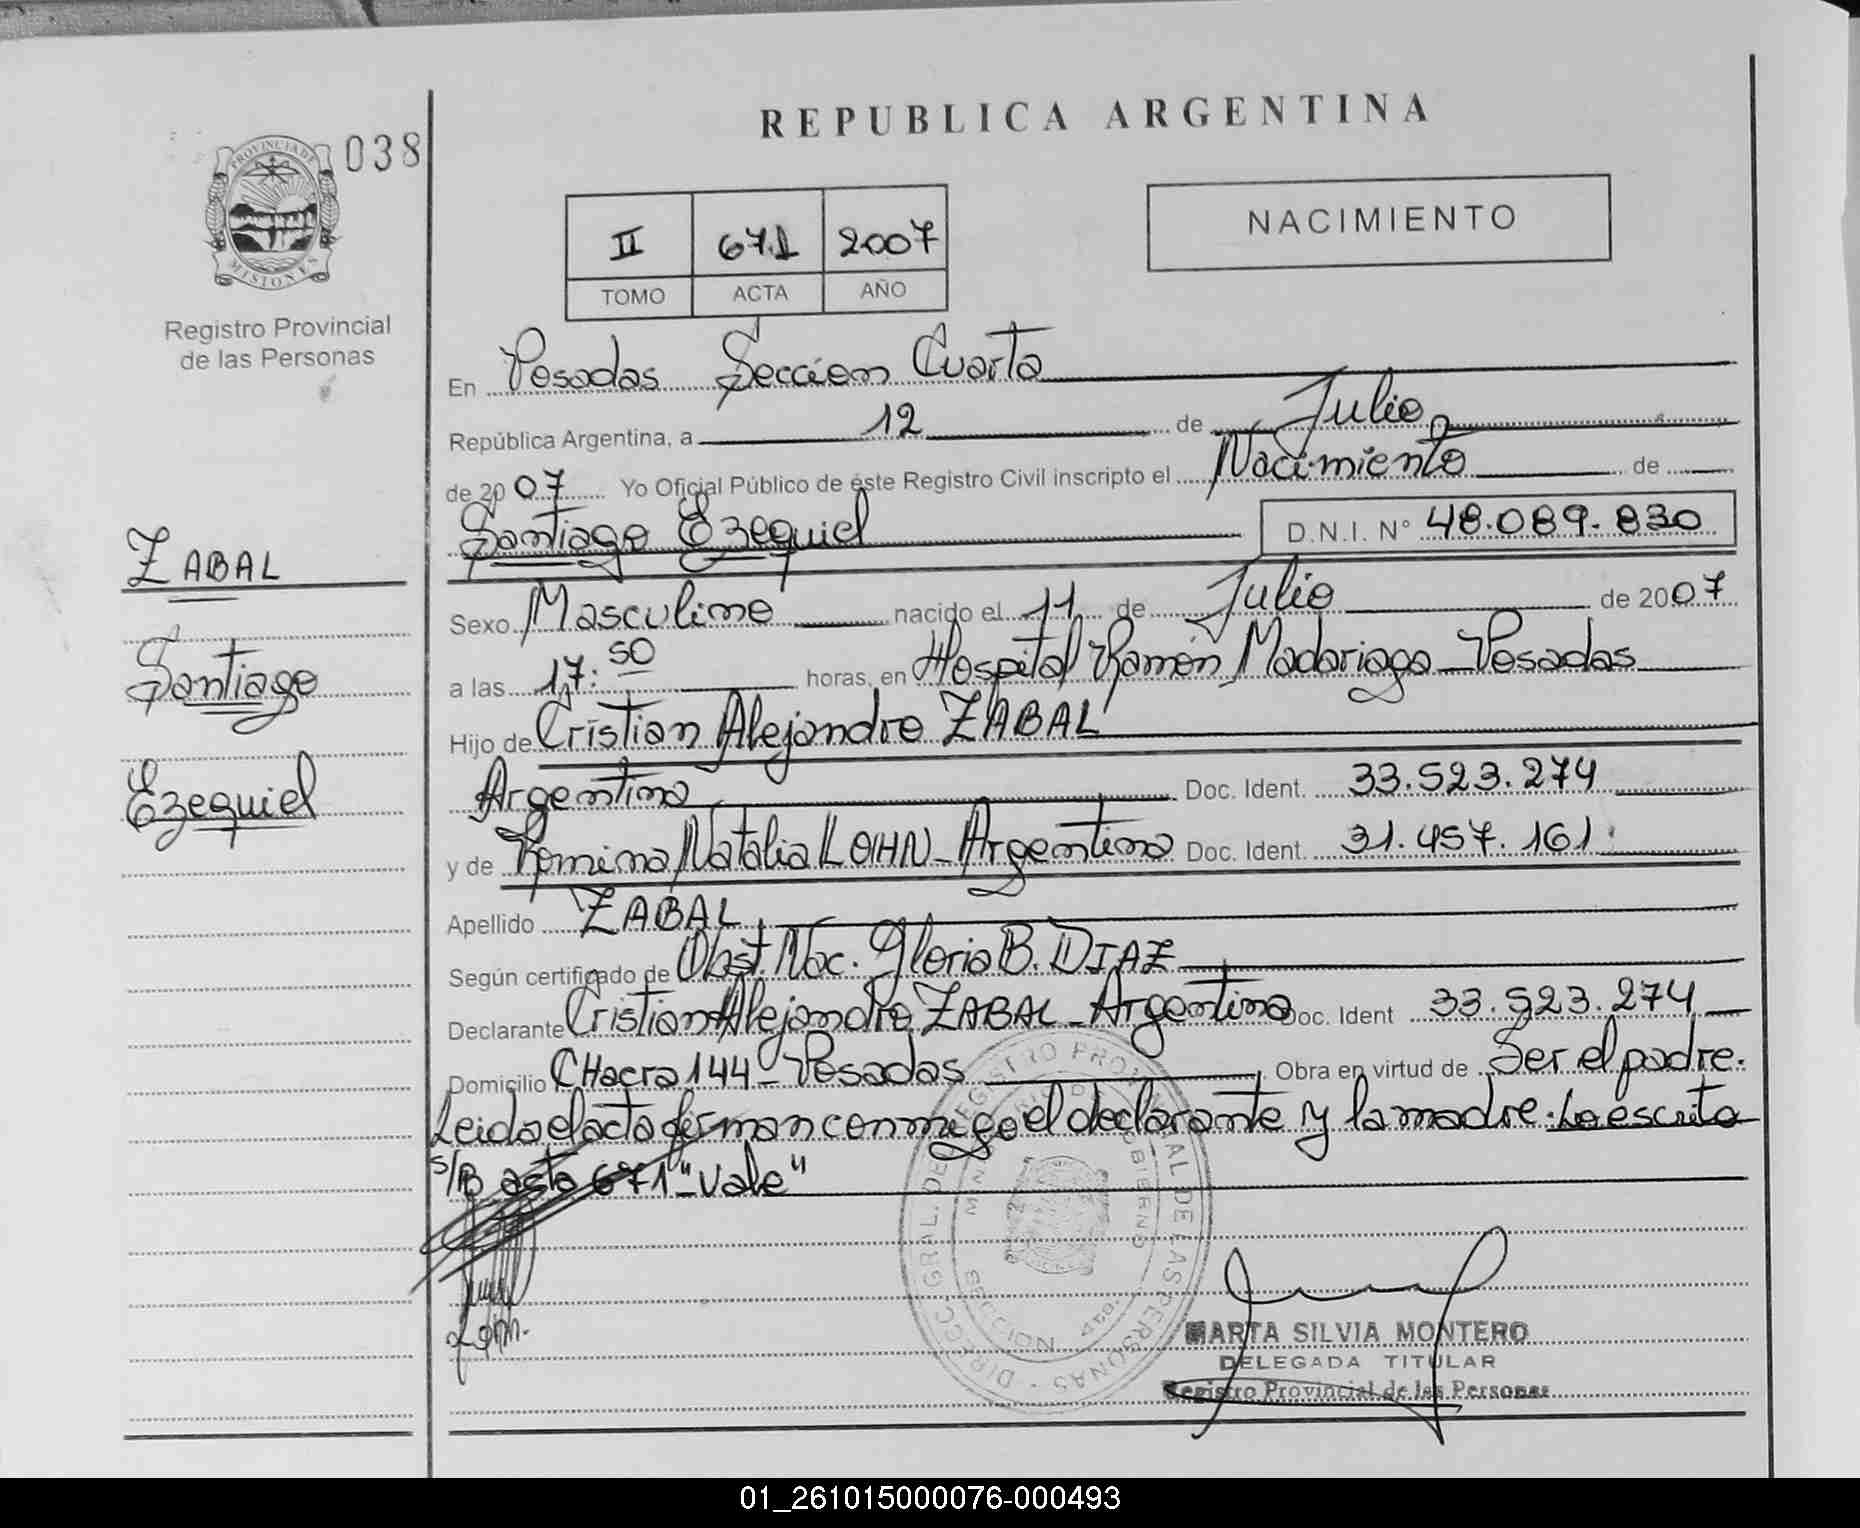 REPUBLICA ARGENTINA
038
PROVINCIA DE
MISIONES
Registro Provincial
de las Personas
II 671 2007
TOMO ACTA AÑO
NACIMIENTO
ZABAL
Santiago
Ezequiel
En Posadas Sección Cuarta
República Argentina, a 12 de Julio
de 2007 Yo Oficial Público de éste Registro Civil inscripto el Nacimiento de
Santiago Ezequiel D.N.I. N° 48.089.830
Sexo Masculino nacido el 11 de Julio de 2007
a las 17:50 horas, en Hospital Ramón Madariaga - Posadas
Hijo de Cristian Alejandro ZABAL
Argentino Doc. Ident. 33.523.274
y de Romina Natalia LOHN - Argentina Doc. Ident. 31.457.161
Apellido ZABAL
Según certificado de Obst. Nac. Gloria B. DIAZ
Declarante Cristian Alejandro ZABAL - Argentino Doc. Ident 33.523.274
Domicilio CHacra 144 - Posadas Obra en virtud de Ser el padre.
Leida el acta firman conmigo el declarante y la madre. Lo escrito
s/B acta 671 "Vale"
DIRECC. GRAL. DE REGISTRO PROVINCIAL DE LAS PERSONAS
MINISTERIO DE GOBIERNO
SECCION 4ta.
MARTA SILVIA MONTERO
DELEGADA TITULAR
Registro Provincial de las Personas
01_261015000076-000493